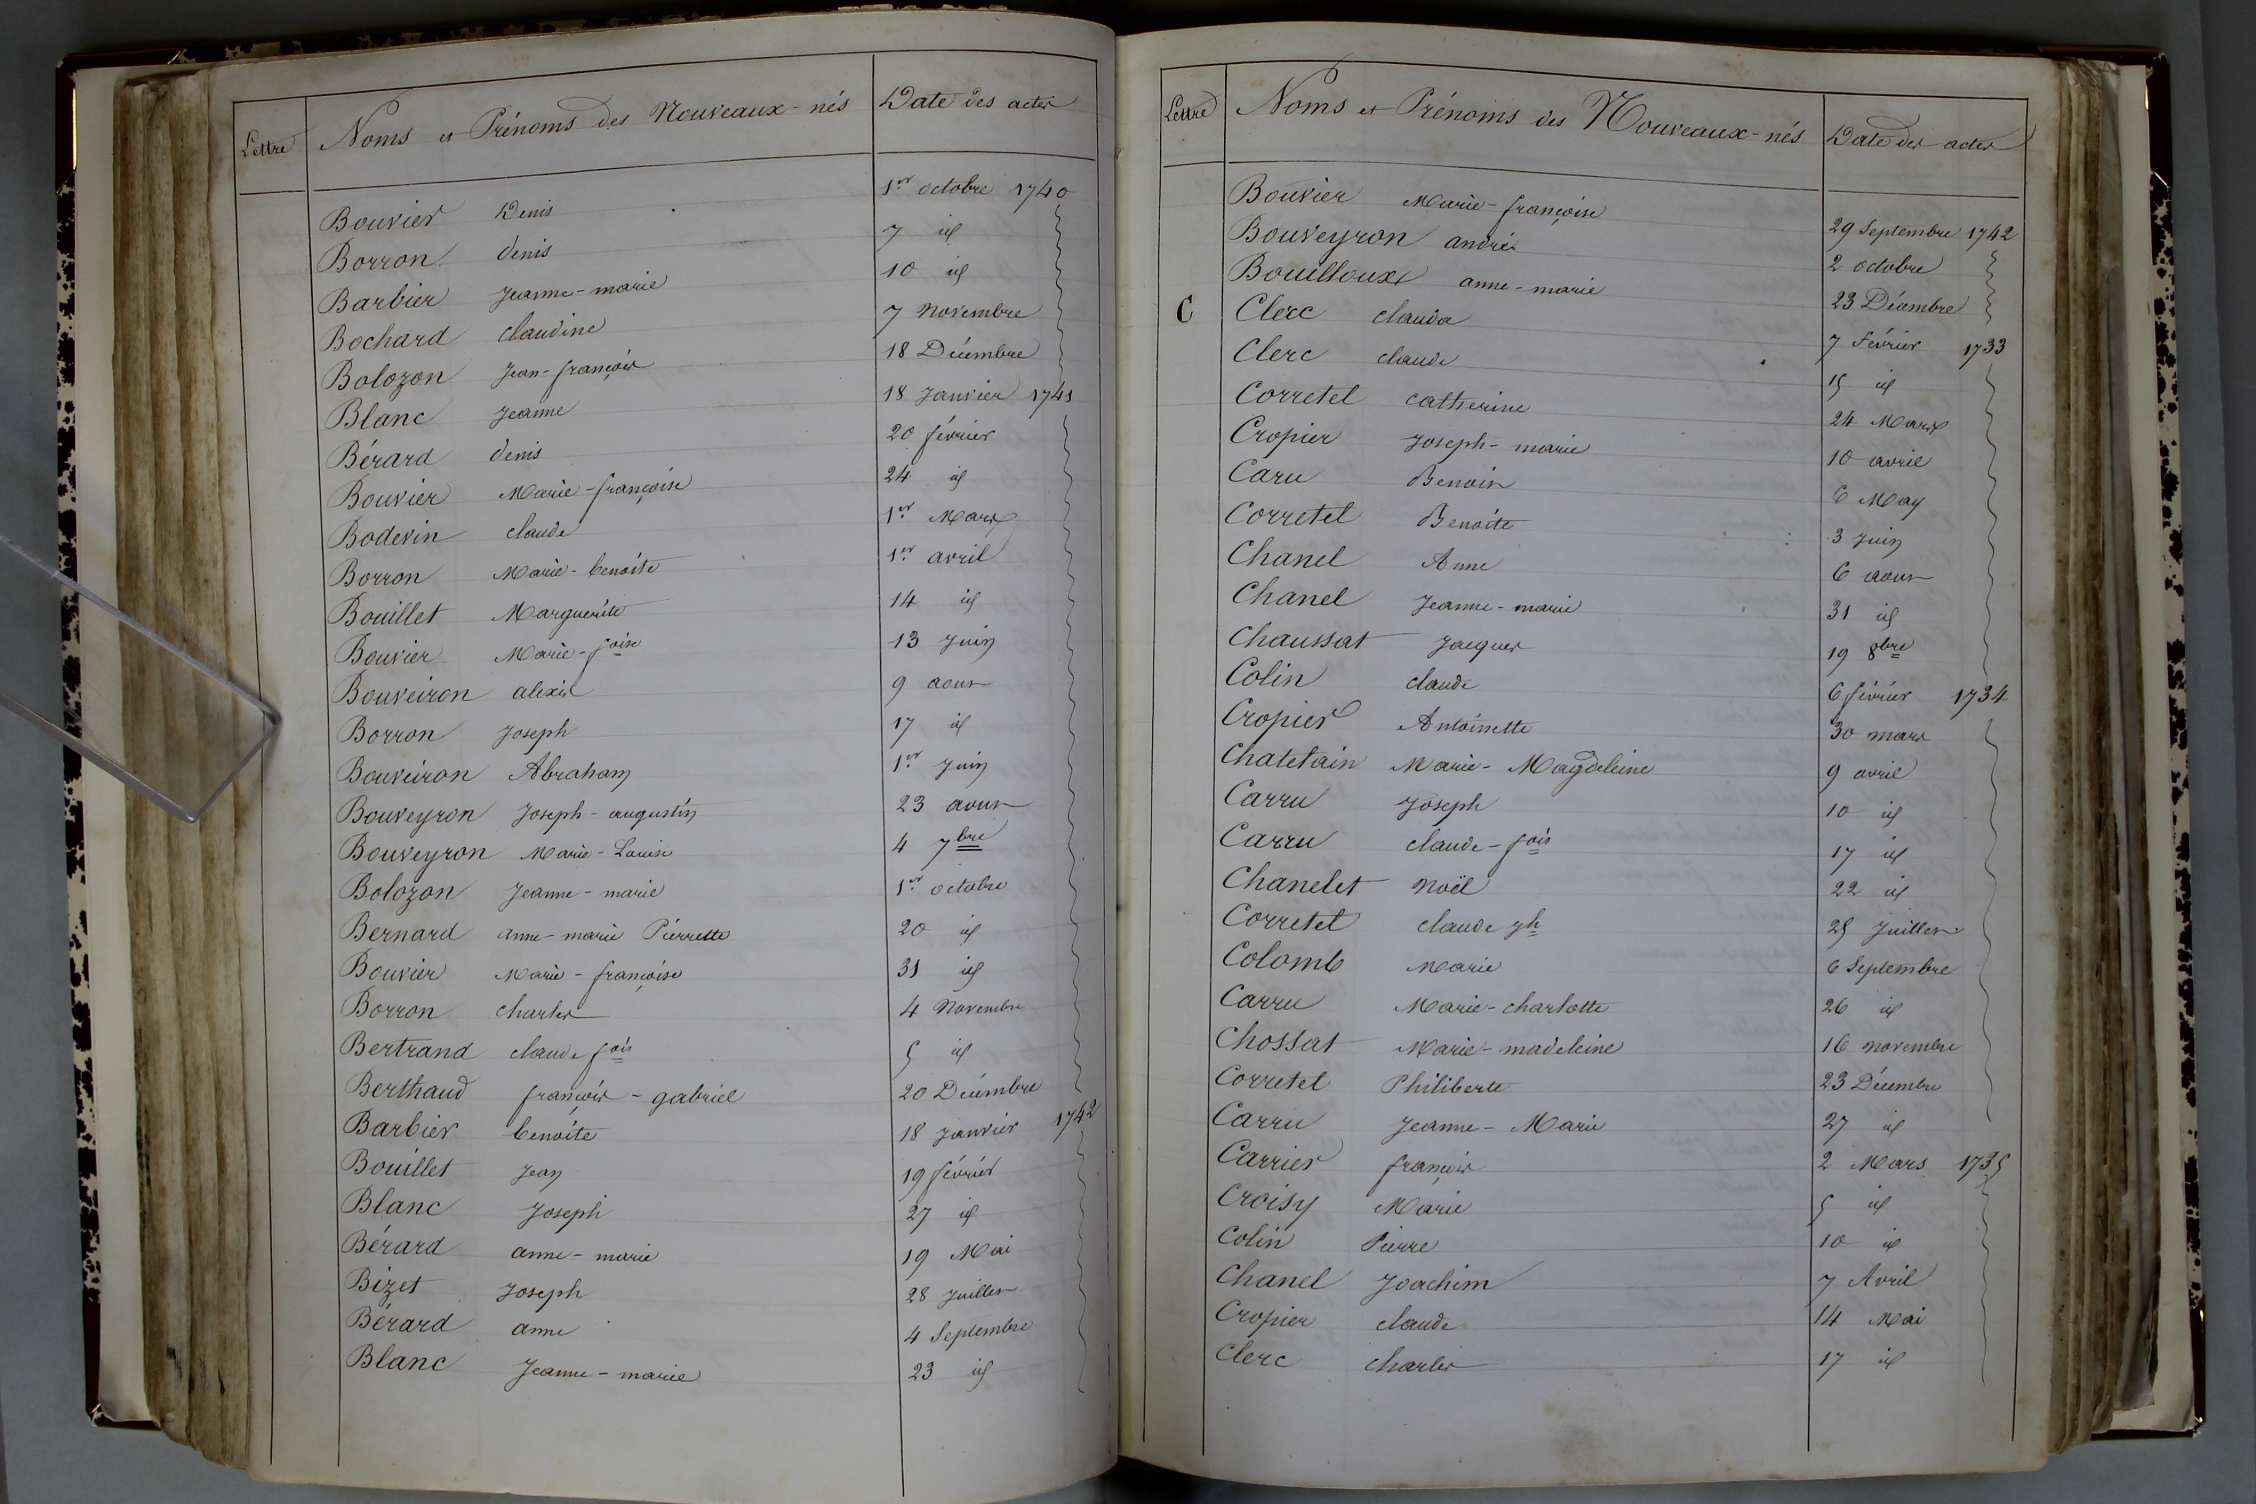 Lettre Noms et Prénoms des Nouveaux-nés Date des actes
Bouvier Denis 1er octobre 1740
Borron denis 7 id
Barbier Jeanne-marie 10 id
Bochard claudine 7 Novembre
Bolozon Jean-françois 18 Décembre
Blanc Jeanne 18 Janvier 1741
Bérard denis 20 février
Bouvier Marie-françoise 24 id
Bodevin claude 1er Mars
Borron Marie-benoite 1er avril
Bouillet Marguerite 14 id
Bouvier Marie-foise 13 Juin
Bouveiron alexis 9 aout
Borron Joseph 17 id
Bouveiron Abraham 1er Juin
Bouveyron Joseph-augustin 23 aout
Bouveyron Marie-Louise 4 7bre
Bolozon Jeanne-marie 1er octobre
Bernard anne-marie Pierrette 20 id
Bouvier Marie-françoise 31 id
Borron charles 4 Novembre
Bertrand claude fois 5 id
Berthaud françois-gabriel 20 Décembre
Barbier benoite 18 Janvier 1742
Bouillet Jean 19 février
Blanc Joseph 27 id
Bérard anne-marie 19 Mai
Bizet Joseph 28 Juillet
Bérard anne 4 Septembre
Blanc Jeanne-marie 23 id
Lettre Noms et Prénoms des Nouveaux-nés Date des actes
Bouvier Marie-françoise 29 Septembre 1742
Bouveyron andré 2 octobre
Bouilloux anne-marie 23 Décembre
C Clerc clauda 7 Février 1733
Clerc claude 15 id
Corretel catherine 24 Mars
Cropier Joseph-marie 10 avril
Caru Benoit 6 May
Corretel Benoite 3 Juin
Chanel Anne 6 aout
Chanel Jeanne-marie 31 id
Chaussat Jacques 19 8bre
Colin claude 6 février 1734
Cropier Antoinette 30 mars
Chatelain Marie-Magdeleine 9 avril
Carru Joseph 10 id
Carru claude-fois 17 id
Chanelet Noël 22 id
Corretel claude jh 25 Juillet
Colomb Marie 6 Septembre
Carru Marie-charlotte 26 id
Chossat Marie-madeleine 16 novembre
Corretel Philiberte 23 Décembre
Carru Jeanne-Marie 27 id
Carrier françois 2 Mars 1735
Croisy Marie 5 id
Colin Pierre 10 id
Chanel Joachim 7 Avril
Cropier claude 14 Mai
Clerc charles 17 id